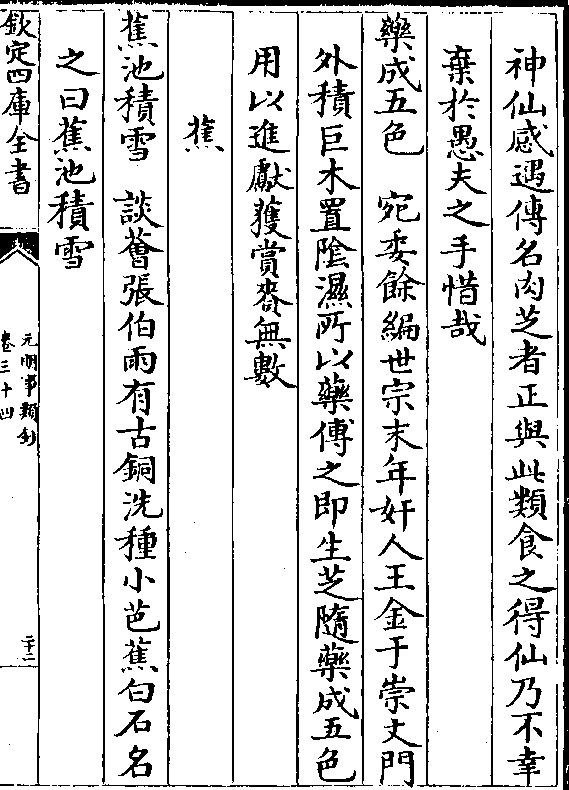 神仙感遇傳名肉芝者正與此類食之得仙乃不幸
棄於愚夫之手惜哉
藥成五色　宛委餘編世宗末年奸人王金于崇文門
外積巨木置陰濕所以藥傅之即生芝隨藥成五色
用以進獻獲賞賚無數
蕉
蕉池積雪　談薈張伯雨有古銅洗種小芭蕉白石名
之曰蕉池積雪
欽定四庫全書
元明事類鈔
卷三十四
二十二